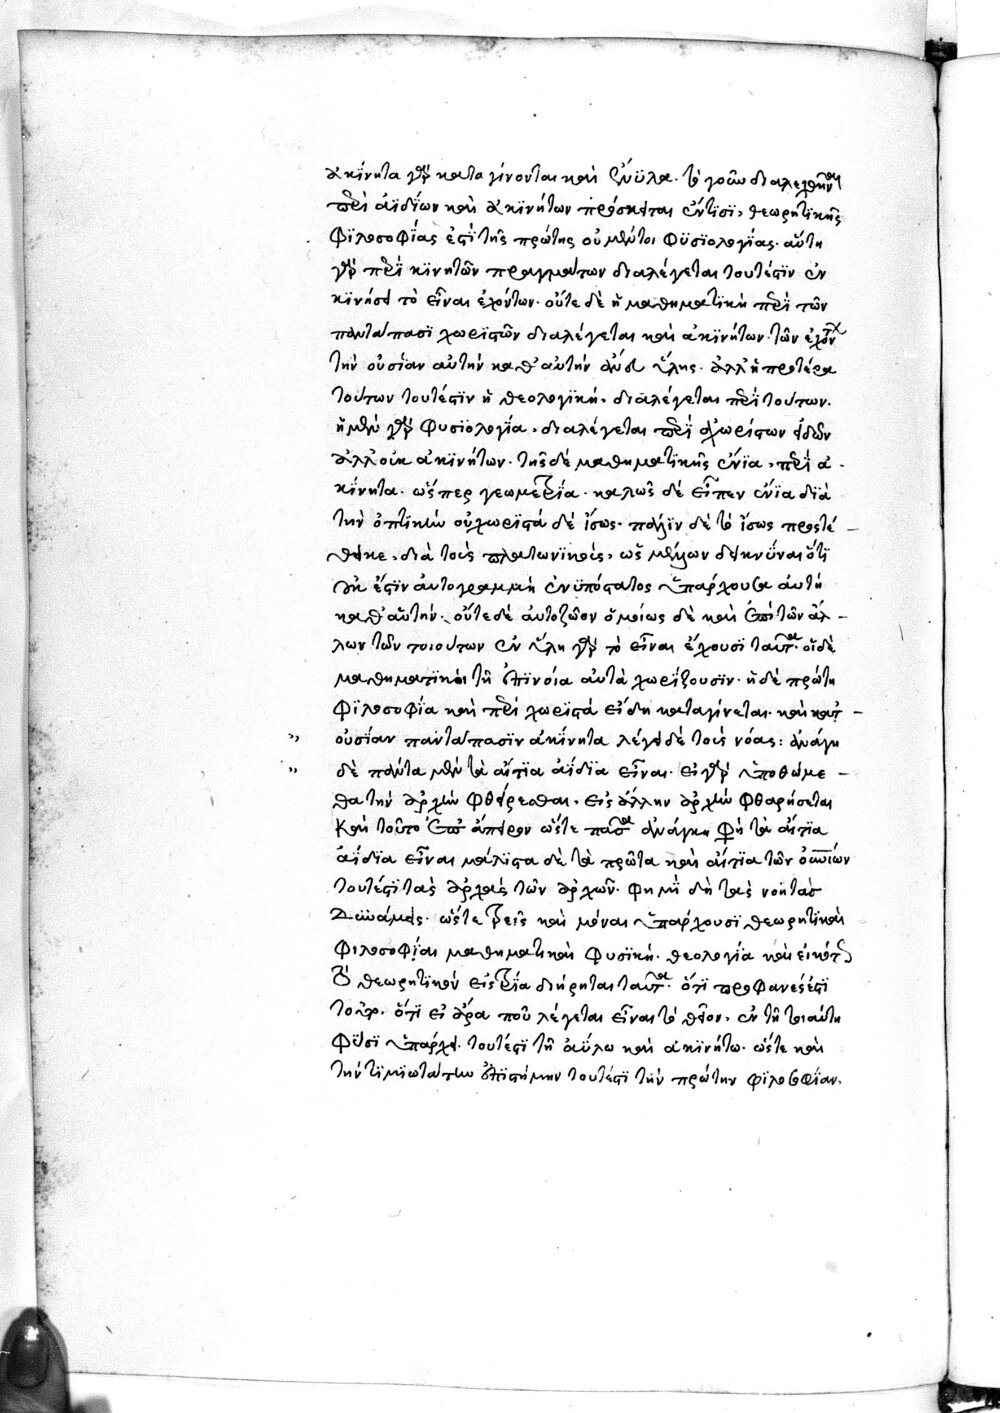 ἀκίνητα γὰρ καταγίνονται καὶ ἔνϋλα· τὸ γοῦν διαλεχθῆναι
περὶ ἀϊδίων καὶ ἀκινήτων πρόσκειται ἐν τισὶ, θεωρητικῆς
φιλοσοφίας ἐστὶ τῆς πρώτης οὐ μέντοι φυσιολογίας· αὕτη
γὰρ περὶ κινητῶν πραγμάτων διαλέγεται τουτέστιν ἐν
κινήσει τὸ εἶναι ἐχόντων· οὔτε δὲ ἡ μαθηματικὴ περὶ τῶν
πανταπάσι χωριστῶν διαλέγεται καὶ ἀκινήτων· τῶν ἐχόντων
τὴν οὐσίαν αὐτὴν καθ' αὑτὴν ἄνευ ὕλης· ἀλλ' ἡ προτέρα
τούτων τουτέστιν ἡ θεολογικὴ, διαλέγεται περὶ τούτων.
ἡ μὲν γὰρ φυσιολογία, διαλέγεται περὶ ἀχωρίστων εἰδῶν
ἀλλ' οὐκ ἀκινήτων· τῆς δὲ μαθηματικῆς ἔνια, περὶ ἀ-
κίνητα· ὥσπερ γεωμετρία· καλῶς δὲ εἶπεν ἔνια διὰ
τὴν ὀπτικὴν οὐ χωριστὰ δὲ ἴσως· πάλιν δὲ τὸ ἴσως προστέ-
θεικε, διὰ τοὺς πλατωνικοὺς, ὡς μέλλων δεικνύναι ὅτι
οὐκ ἔστιν αὐτογραμμὴ ἐνυπόστατος ὑπάρχουσα αὐτὴ
καθ' αὑτήν· οὔτε δὲ αὐτοζῶον ὁμοίως δὲ καὶ ἐπὶ τῶν ἄλ-
λων τῶν τοιούτων ἐν ὕλῃ γὰρ τὸ εἶναι ἔχουσι ταῦτα· οἱ δὲ
μαθηματικοὶ τῇ ἐπινοίᾳ αὐτὰ χωρίζουσιν· ἡ δὲ πρώτη
φιλοσοφία καὶ περὶ χωριστὰ εἴδη καταγίνεται· καὶ κατ-
ουσίαν πανταπάσιν ἀκίνητα λέγει δὲ τοὺς νόας: ἀνάγκη
δὲ πάντα μὲν τὰ αἴτια ἀΐδια εἶναι· εἰ γὰρ ὑποθώμε-
θα τὴν ἀρχὴν φθείρεσθαι, εἰς ἄλλην ἀρχὴν φθαρήσεται
καὶ τοῦτο ἐπ' ἄπειρον ὥστε πᾶσα ἀνάγκη φησὶ τὰ αἴτια
ἀΐδια εἶναι μάλιστα δὲ τὰ πρῶτα καὶ αἴτια τῶν οὐρανίων
τουτέστι τὰς ἀρχὰς τῶν ἀρχῶν· φημὶ δὴ τὰς νοητὰς
δυνάμεις· ὥστε τρεῖς καὶ μόναι ὑπάρχουσι θεωρητικαὶ
φιλοσοφίαι μαθηματικὴ φυσικὴ· θεολογία καὶ εἰκότως
τὸ θεωρητικὸν εἰς τρία διῄρηται ταῦτα· ὅτι προφανές ἐστι
τοῖς ὅτι εἰ ἄρα ποῦ λέγεται εἶναι τὸ θεῖον, ἐν τῇ τοιαύτῃ
φύσει ὑπάρχει· τουτέστι τῇ ἀΰλῳ καὶ ἀκινήτῳ· ὥστε καὶ
τὴν τιμιωτάτην ἐπιστήμην τουτέστι τὴν πρώτην φιλοσοφίαν,